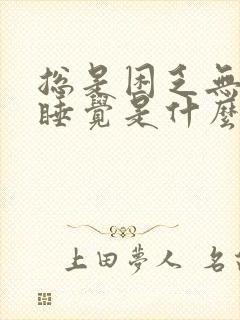 總是困乏無
睡覺是什麼
上田夢人 名